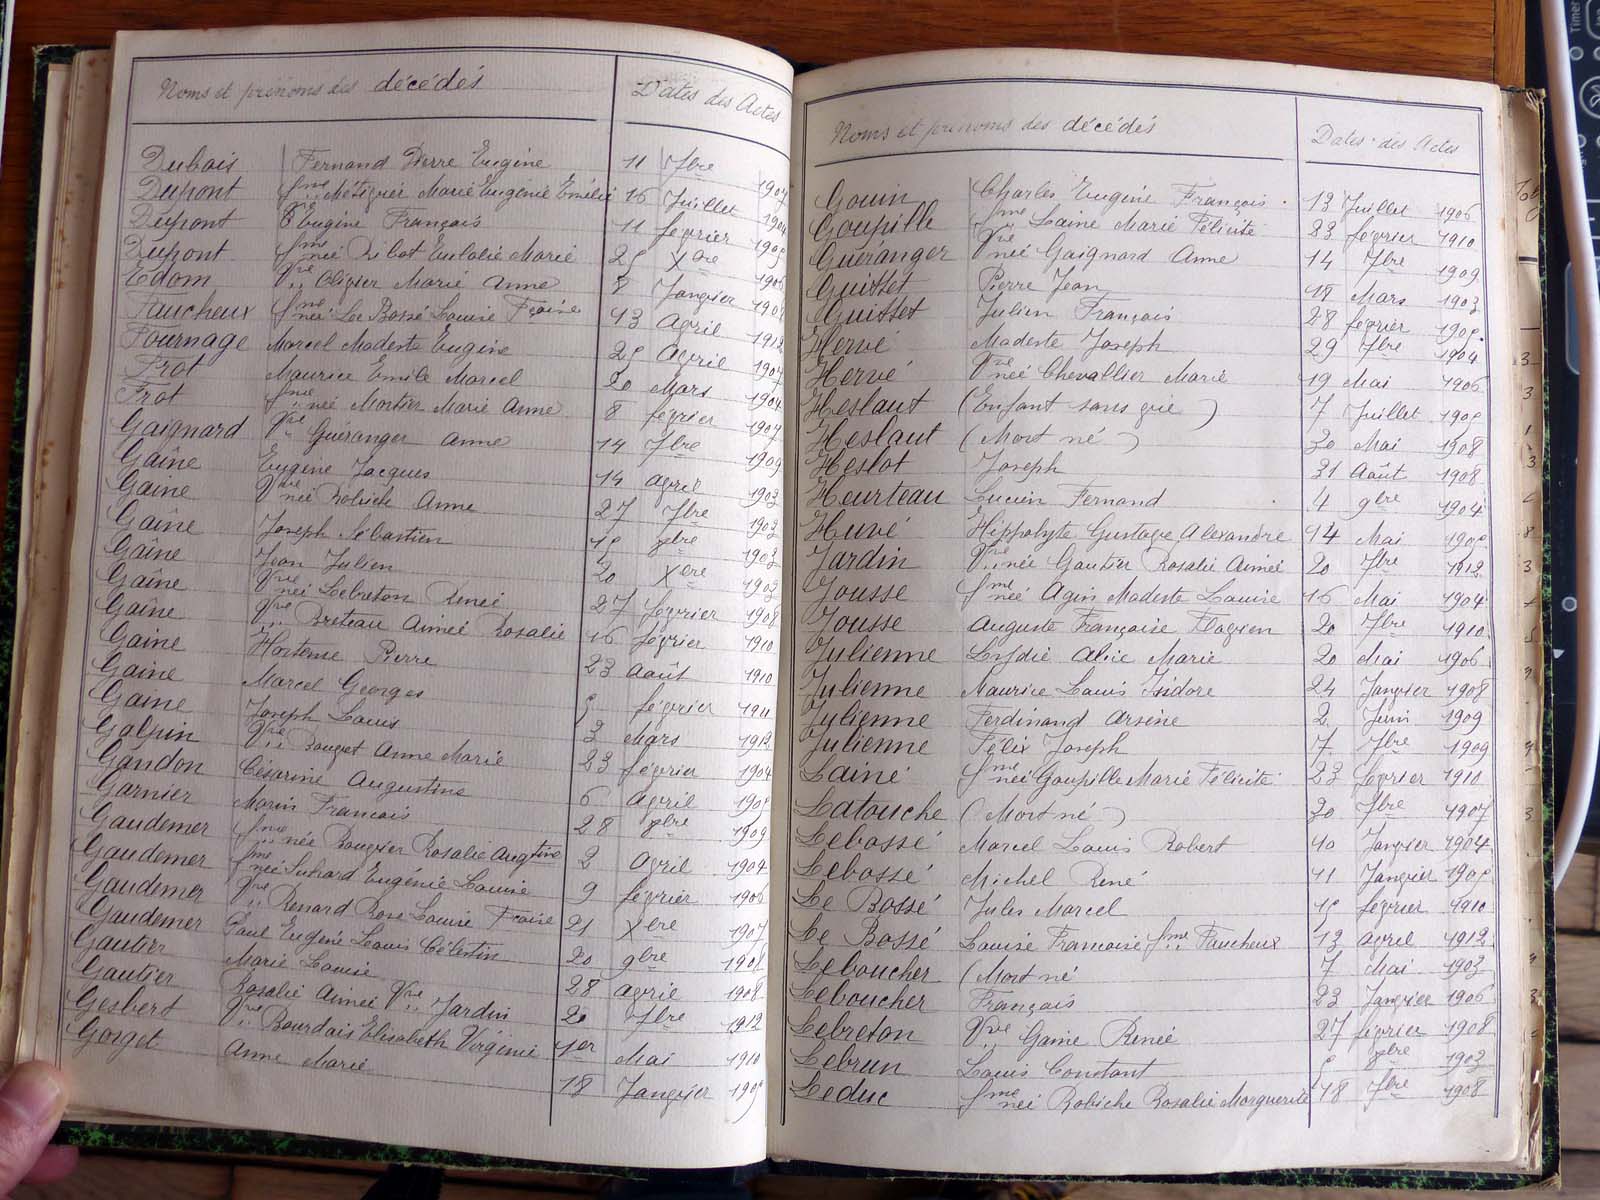 Noms et prénoms des décédés Dates des Actes
Dubois Fernand Pierre Eugène 11 7bre 1907
Dupont fme Métiger Marie Eugénie Emélie 16 Juillet 1904
Dupont Eugène François 11 février 1905
Dupont fme née Ribot Eulalie Marie 25 Xbre 1906
Edom Vve Olivier Marie Anne 8 Janvier 1908
Faucheux fme née Le Bossé Louise Fçoise 13 Avril 1912
Fournage Marcel Modeste Eugène 25 Avril 1907
Frot Maurice Emile Marcel 20 Mars 1904
Frot fme née Mortier Marie Anne 8 février 1907
Gaignard Vve Guéranger Anne 14 7bre 1909
Gaîne Eugène Jacques 14 avril 1903
Gaine Vve née Robiche Anne 27 7bre 1903
Gaîne Joseph Sébastien 15 9bre 1903
Gaîne Jean Julien 20 Xbre 1903
Gaîne Vve née Lebreton Renée 27 février 1908
Gaîne Vve Breteau Aimée Rosalie 16 février 1910
Gaine Hortense Pierre 23 Août 1910
Gaine Marcel Georges 5 février 1911
Gaine Joseph Louis 3 Mars 1912
Galpin Vve Bouget Anne Marie 23 février 1904
Gandon Césarine Augustine 6 avril 1905
Garnier Marin François 28 8bre 1909
Gaudemer fme née Bouvier Rosalie Augtine 2 Avril 1904
Gaudemer fme née Suhard Eugénie Louise 9 février 1906
Gaudemer Vve Renard Rose Louise Fçoise 21 Xbre 1907
Gaudemer Paul Eugène Louis Célestin 20 9bre 1908
Gautier Marie Louise 28 avril 1908
Gautier Rosalie Aimée Vve Jardin 20 7bre 1912
Gesbert Vve Bourdais Elisabeth Virginie 1er Mai 1910
Gorget Anne Marie 18 Janvier 1909
Noms et prénoms des décédés Dates des Actes
Gouin Charles Eugène François 13 Juillet 1906
Goupille fme Lainé Marie Félicité 23 février 1910
Guéranger Vve née Gaignard Anne 14 7bre 1909
Guisset Pierre Jean 18 Mars 1903
Guisset Julien François 28 février 1905
Hervé Modeste Joseph 29 7bre 1904
Hervé Vve née Chevallier Marie 19 Mai 1906
Heslaut (Enfant sans vie) 7 Juillet 1905
Heslaut (Mort né) 30 Mai 1908
Heslot Joseph 31 Août 1908
Heurteau Lucien Fernand 4 9bre 1904
Huvé Hippolyte Gustave Alexandre 14 Mai 1905
Jardin Vve née Gautier Rosalie Aimée 20 7bre 1912
Jousse fme née Agin Modeste Louise 16 Mai 1904
Jousse Auguste Françoise Flavien 20 7bre 1910
Julienne Lydie Alice Marie 20 Mai 1906
Julienne Maurice Louis Isidore 24 Janvier 1908
Julienne Ferdinand Arsène 2 Juin 1909
Julienne Félix Joseph 7 7bre 1909
Lainé fme née Goupille Marie Félicité 23 février 1910
Latouche (Mort né) 20 7bre 1907
Lebossé Marcel Louis Robert 10 Janvier 1904
Lebossé Michel René 11 Janvier 1905
Le Bossé Jules Marcel 15 février 1910
Le Bossé Louise Francoise fme Faucheux 13 avril 1912
Leboucher (Mort né 7 Mai 1903
Leboucher François 23 Janvier 1906
Lebreton Vve Gaine Renée 27 février 1908
Lebrun Louis Constant 5 9bre 1903
Leduc fme née Robiche Rosalie Marguerite 18 7bre 1908